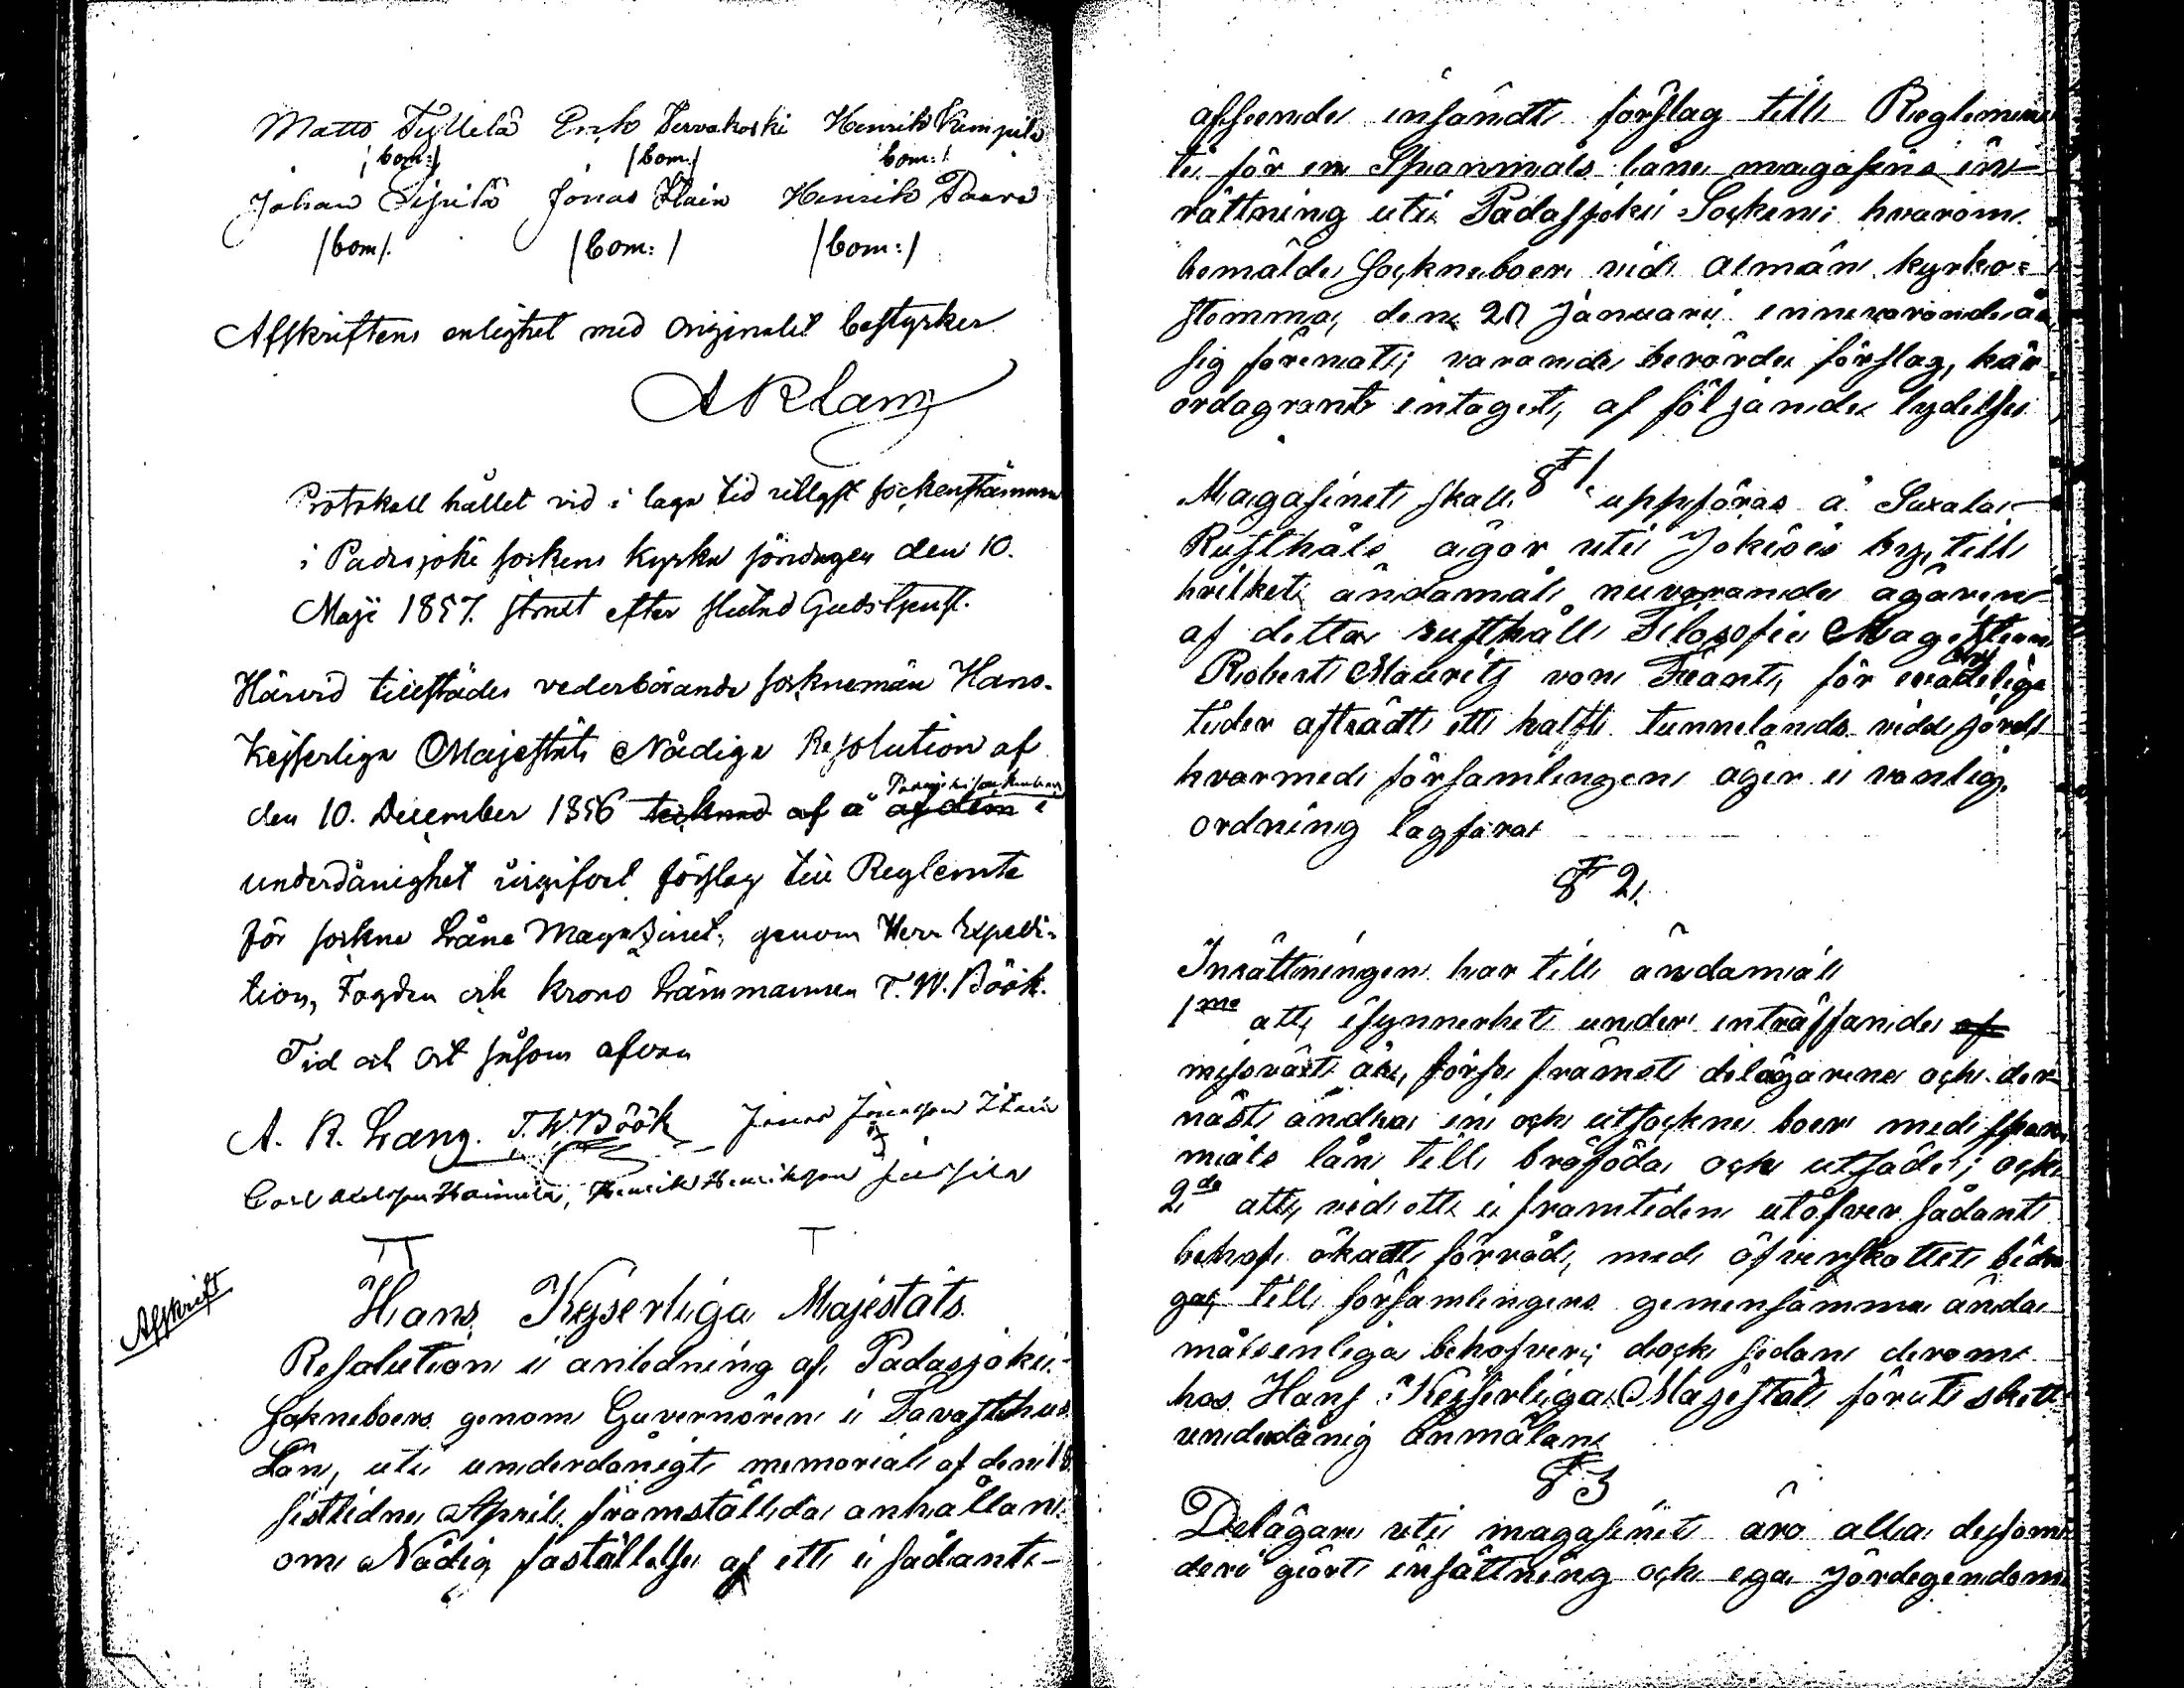 Matts Tyllilä Erik Vervakoski Henrik Kumpula
/bom:/ /bom/ bom:/
Johan Sipilä Jonas Klain Henrik Paara
/bom/. /bom:/ /bom:/
Affkriftens enlighet med Originalet bestyrker
A R Lang
Protokoll hållet vid i laga tid utlyst sockenstämma
i Padasjoki sockens Kyrka söndagen den 10.
Maji 1857. straxt efter slutad Gudstjenst.
Härvid tillstädes vederbörande socknemän Hans
Kejserliga Majestäts Nådiga Resolution af
den 10. December 1856 å i
underdånighet förslag till Reglemte
för sockne Låne Magazinet, genom Herr Expedi-
tion, Fogden och Krono Länmannen T. W. Böök.
Tid och ort såsom ofvan
A. R. Lang. T. W. Böök Jonas Jonasson
Carl Henrik Henriksson
Afskrift
Hans Kejserliga Majestäts
Resolution i anledning af Padasjoki
Sokneboers genom Guvernören i Tavastehus
Län, uti underdånigt memorial af den 18
sistlidne April framställda anhållan
om Nådig faställelse af ett i sådant
afseende insändt förslag till Reglemen
te för en Spanmåls låne magasins in-
rättning uti Padasjoki Socken; hvarom
bemälde Sockneboer vid almän kyrko=
stämma, den 20 Januarii innevarande år
sig förenat; varande berörde förslag, här
ordagrant intaget, af följande lydelse
§ 1
Magasinet skall uppföras å
Rusthåls ägor uti Jokiois by, till
hvilket ändamål nuvarande ägaren
af detta rusthåll Filosofie Magistern
Robert Mauritz von Fieant, för
tider afträdt ett halft tunnelands vidd jord
hvarmed församlingen äger i vanlig
ordning lagfara
§ 2.
Inrättningen har till ändamål
1mo att, isynnerhet under inträffande af
missväxt år, förse främst delägarene och der
näst andra in och utsockne boer med span
måls lån till brödföda och utsäde; och
2do att, vid ett i framtiden utöfver sådant
behof ökadt förråd, med öfverskottet bidra
ga till församlingens gemensamma ända
målsenliga behofver; dock sedan derom
hos Hans Kejserliga Majestät förut skett
underdånig anmälan
§ 3
Delägare uti magasinet äro alla de som
deri gjort insättning och ega jordegendom